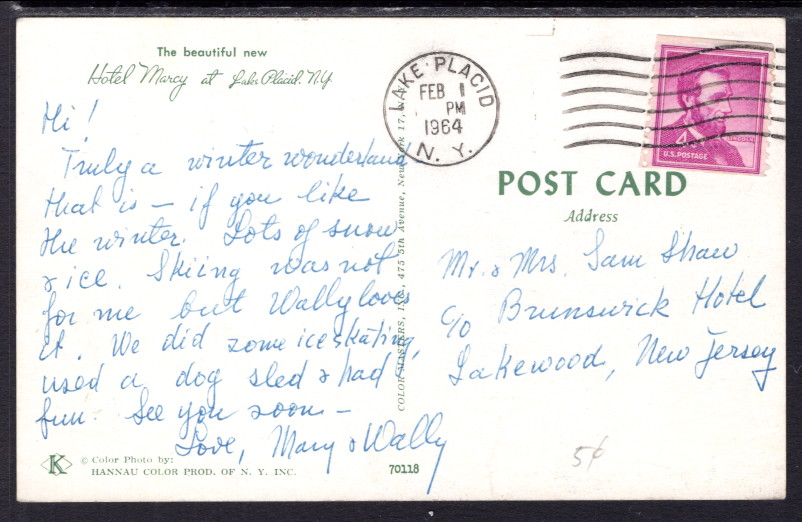 The beautiful new
Hotel Marcy at Lake Placid, N.Y.
Hi!
Truly a winter wonderland
that is — if you like
the winter. Lots of snow
& ice. Skiing was not
for me but Wally loves
it. We did some ice skating,
used a dog sled & had
fun. See you soon —
Love, Mary & Wally
© Color Photo by:
HANNAU COLOR PROD. OF N. Y. INC.
K
70118
COLOR MASTERS, INC., 475 5th Avenue, New York 17, N.Y.
LAKE PLACID
FEB 1
PM
1964
N. Y.
4¢
LINCOLN
U.S. POSTAGE
POST CARD
Address
Mr. & Mrs. Sam Shaw
c/o Brunswick Hotel
Lakewood, New Jersey
5¢